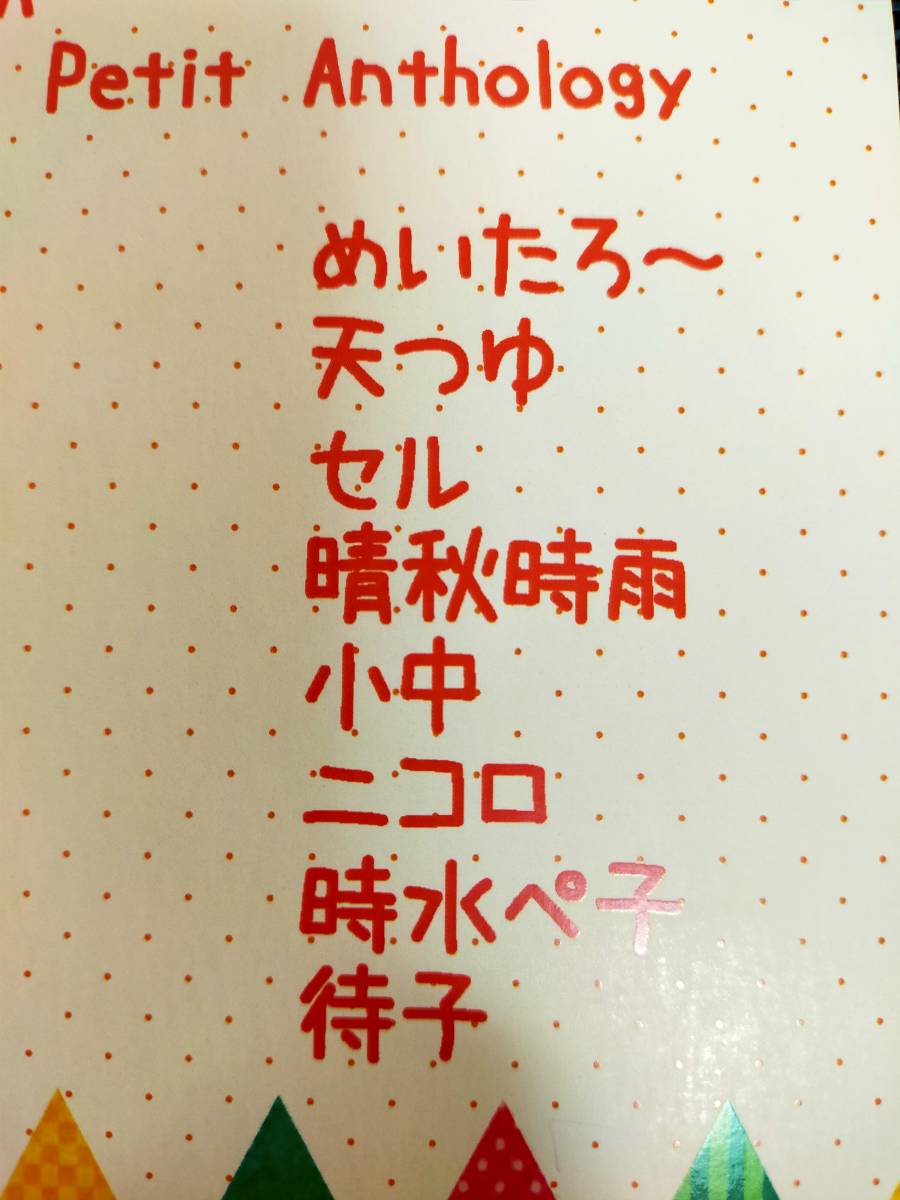 Petit Anthology
めいたろ～
天つゆ
セル
晴秋時雨
小中
ニコロ
時水ペ子
待子